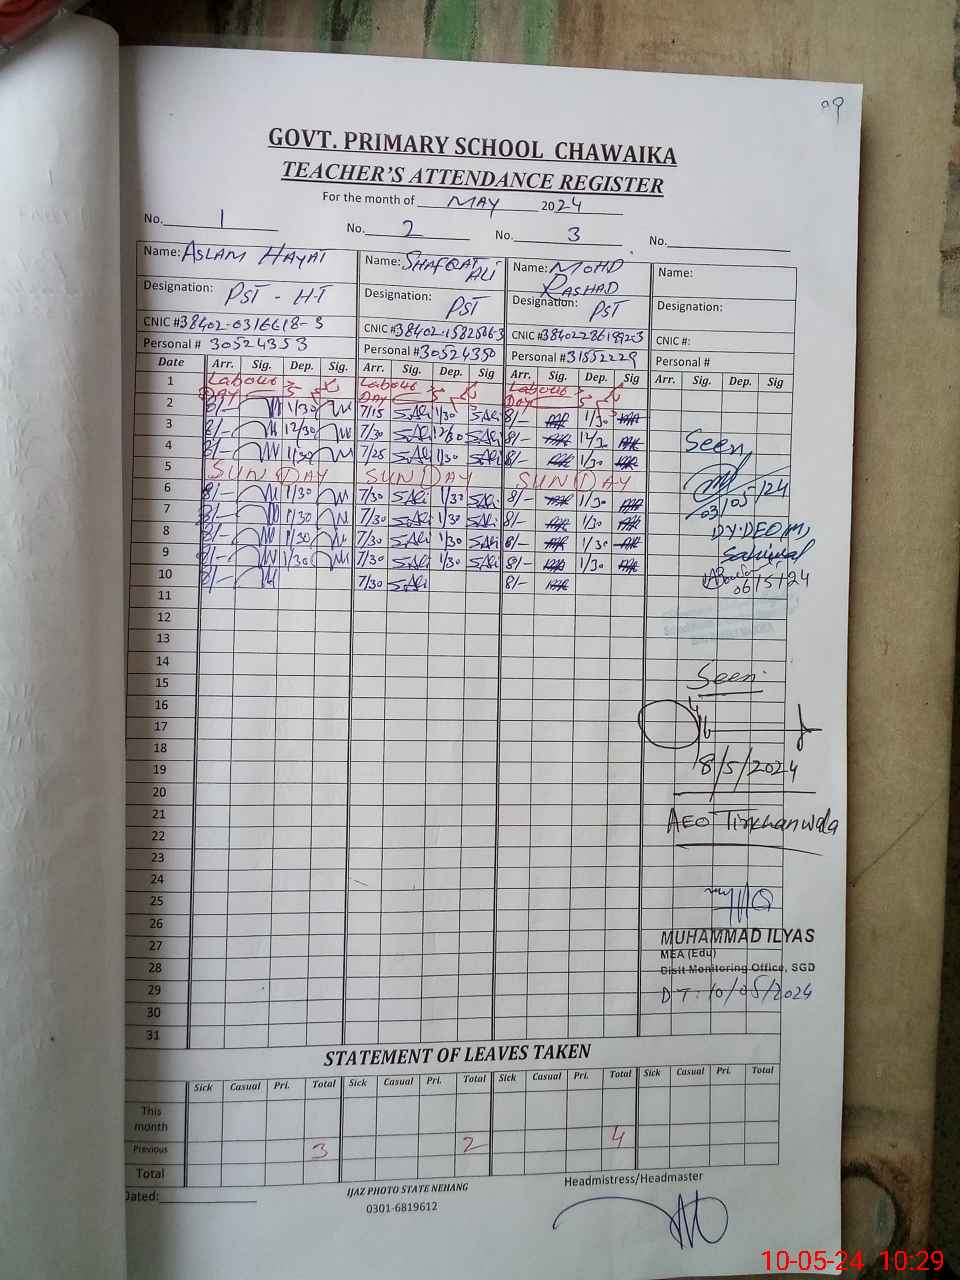 99
GOVT. PRIMARY SCHOOL CHAWAIKA
TEACHER'S ATTENDANCE REGISTER
For the month of MAY 2024
No. 1 No. 2 No. 3 No.
Name: ASLAM HAYAT Name: SHAFQAT ALI Name: MOHD RASHAD Name:
Designation: PST - HT Designation: PST Designation: PST Designation:
CNIC #38402-0316618-3 CNIC # CNIC # CNIC #:
Personal # 30524353 Personal #30524350 Personal #31552229 Personal #
Date Arr. Sig. Dep. Sig. Arr. Sig. Dep. Sig. Arr. Sig. Dep. Sig Arr. Sig. Dep. Sig
1 Labour DAY Labour DAY Labour DAY
2 8/- 1/30 7/15 S.Ali 1/30 S.Ali 8/- 1/30
3 8/- 12/30 7/30 S.Ali 12/30 S.Ali 8/- 12/30
4 8/- 1/30 7/25 S.Ali 1/30 S.Ali 8/- 1/30
5 SUNDAY SUNDAY SUNDAY
6 8/- 1/30 7/30 S.Ali 1/30 S.Ali 8/- 1/30
7 8/- 1/30 7/30 S.Ali 1/30 S.Ali 8/- 1/30
8 8/- 1/30 7/30 S.Ali 1/30 S.Ali 8/- 1/30
9 8/- 1/30 7/30 S.Ali 1/30 S.Ali 8/- 1/30
10 8/- 7/30 S.Ali 8/-
11
12
13
14
15
16
17
18
19
20
21
22
23
24
25
26
27
28
29
30
31
Seen
03/05/24
DY.DEO(M)
Sahiwal
06/5/24
Seen
8/5/2024
AEO Tirkhanwala
MUHAMMAD ILYAS
MEA (Edu)
Distt Monitoring Office, SGD
DT: 10/05/2024
STATEMENT OF LEAVES TAKEN
Sick Casual Pri. Total Sick Casual Pri. Total Sick Casual Pri. Total Sick Casual Pri. Total
This month
Previous 3 2 4
Total
Dated:
IJAZ PHOTO STATE NEHANG
0301-6819612
Headmistress/Headmaster
10-05-24 10:29